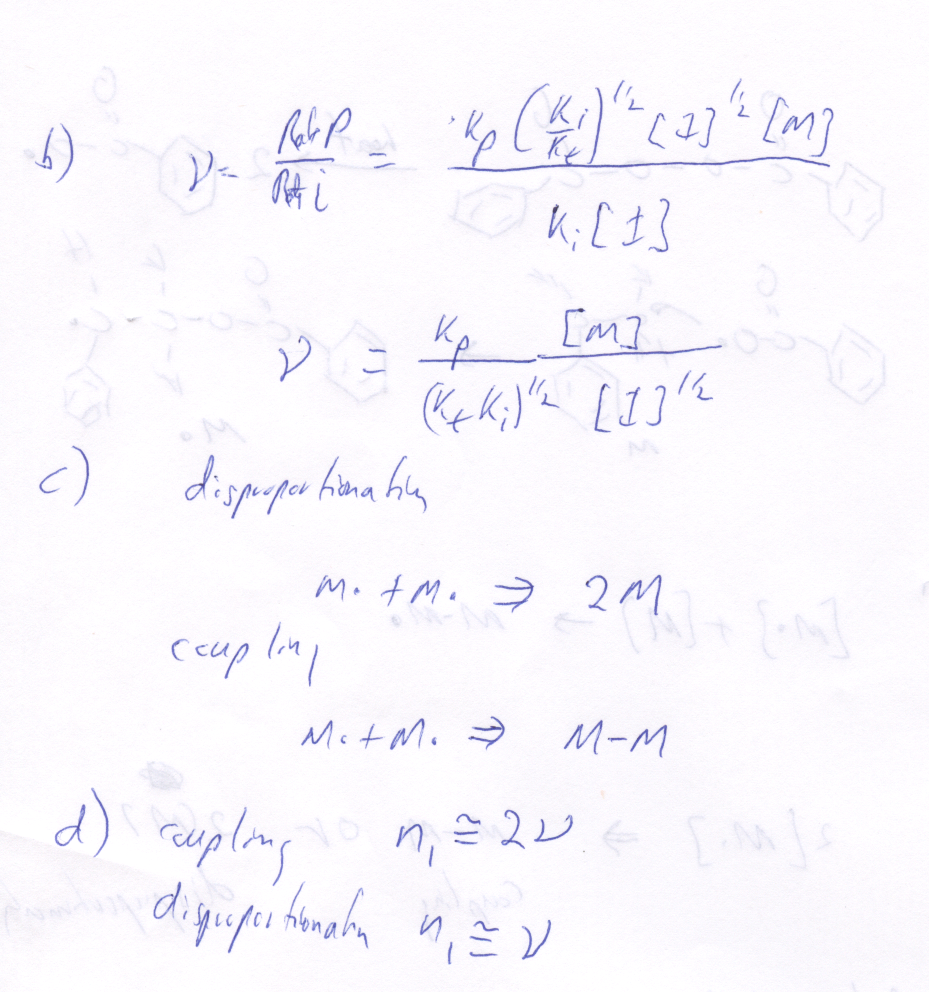 b) ν = Rate P / Rate i = K_p (K_i/K_t)^1/2 [I]^1/2 [M] / K_i [I]
ν = K_p [M] / (K_t K_i)^1/2 [I]^1/2
c) disproportionation
M• + M• ⇒ 2M
coupling
M• + M• ⇒ M-M
d) coupling n_1 ≅ 2ν
disproportionation n_1 ≅ ν